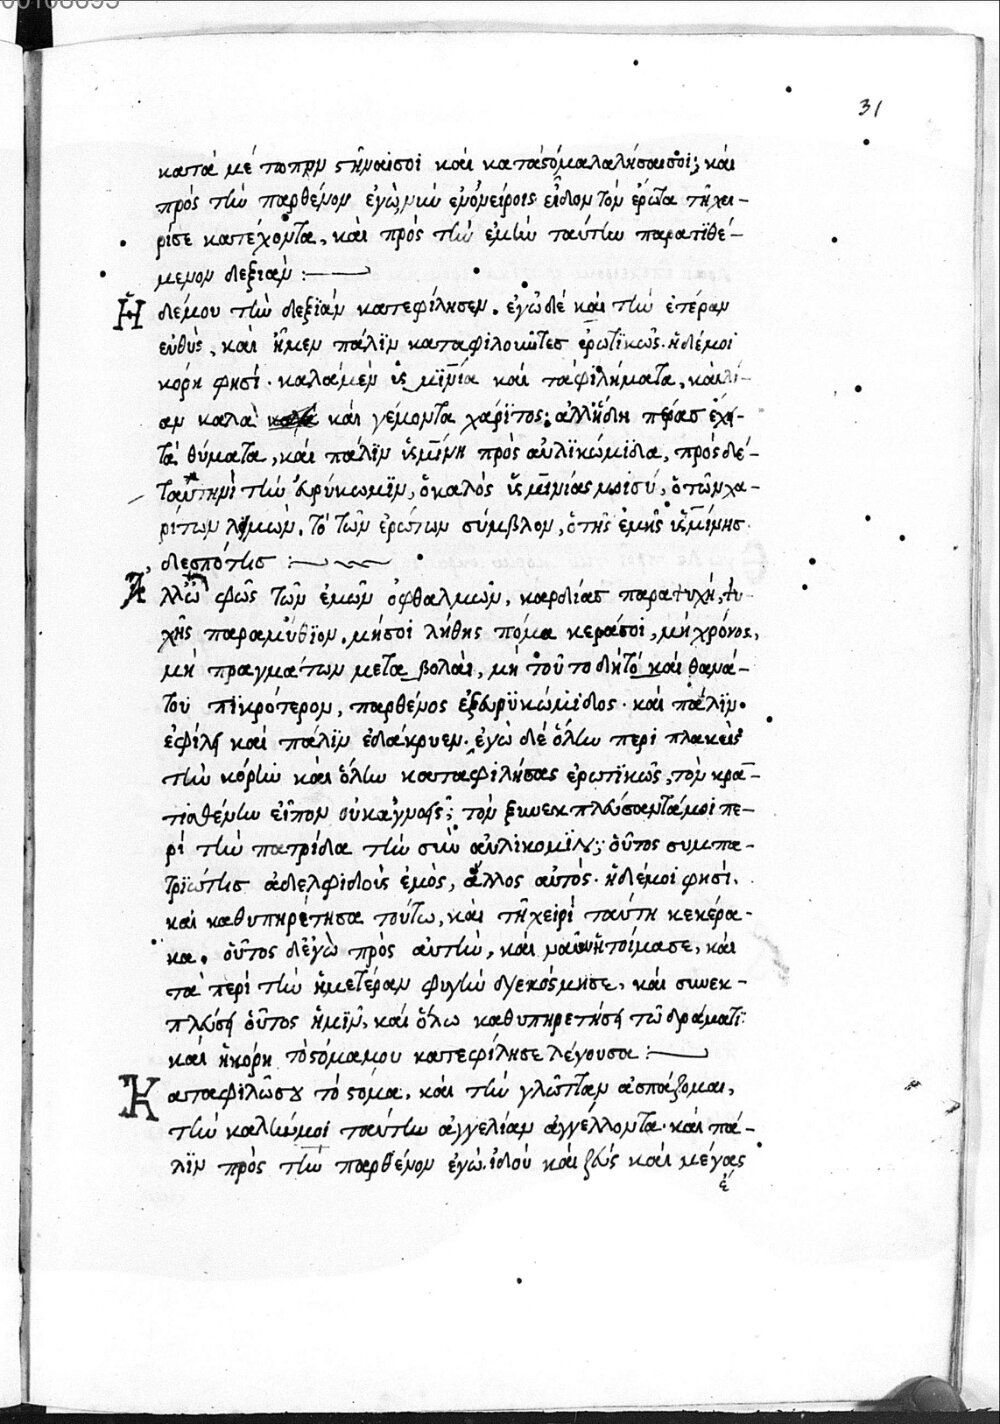 00108695
31
κατά μέ τωπον στῆναί σοι καὶ κατὰ στόμα λαλήσαι σοί; καὶ
πρός τὴν παρθένον ἐγὼ, νῦν ἐν ὀνείροις εἶδον τὸν ἔρωτα τῆ χει-
ρίσε κατέχοντα, καὶ πρὸς τὴν ἐμὴν ταύτην παρατϊθέ-
μενον δεξιάν:
Ἡ δέ μου τὴν δεξϊάν κατεφίλησεν. ἐγὼ δέ καὶ τὴν ἑτέραν
εὐθὺς, καὶ ἦμεν πάλϊν καταφιλοῦντες ἐρωτϊκῶς. ἡ δέ μοι
κόρη φησί. καλὰ μέν ὑσμϊνία καὶ τὰ φιλήματα, καὶ λί-
αν καλὰ καὶ γέμοντα χάρϊτος. ἀλλ' ἤδη πέρας ἔχει
τὰ θύματα, καὶ πάλϊν ὑσμίνη πρὸς αὐλϊκώμϊδα, πρὸς δέ
ταύτην τὴν εὐρύκωμϊν, ὁ καλὸς ὑσμινίας μοι σύ, ὁ τῶν χα-
ρίτων λειμὼν, τὸ τῶν ἐρώτων σύμβλον, ὁ τῆς ἐμῆς ὑσμίνης
δεσπότης
Ἀλλ' ὦ φῶς τῶν ἐμῶν ὀφθαλμῶν, καρδίας παρατυχή, ψυ-
χῆς παραμύθϊον, μή σοι λήθης πόμα κεράσοι, μὴ χρόνος,
μὴ πραγμάτων μεταβολαὶ, μὴ τοῦτο δὴ τὸ καὶ θανά-
του πϊκρότερον, παρθένος ἐξ εὐρϋκώμιδος. καὶ πάλϊν
ἐφίλει καὶ πάλϊν ἐδάκρυεν. ἐγὼ δέ ὅλην περι πλακεὶς
τὴν κόρην καὶ ὅλην καταφιλήσας ἐρωτϊκῶς, τὸν κρα-
τισθένην εἶπον οὐκ ἀγνοεῖς; τόν ξυνεκπλεύσαντά μοι πε-
ρὶ τὴν πατρίδα τὴν σὴν αὐλικομϊν; οὗτος συμπα-
τρϊώτης ἀδελφιδοὺς ἐμὸς, ἄλλος αὐτὸς. ἡ δέ μοι φησὶ.
καὶ καθυπηρέτησα τούτω, καὶ τῆ χειρὶ ταύτη κεκέρα-
κα. οὗτος δ' ἐγὼ πρὸς αὐτὴν, καὶ ναῦν ἡτοίμασε, καὶ
τὰ περὶ τὴν ἡμετέραν φυγὴν διεκόσμησε, καὶ συνεκ-
πλεύσει οὗτος ἡμῖν, καὶ ὅλω καθυπηρετήσει τῶ δράματι
καὶ ἡ κόρη τὸ στόμα μου κατεφίλησε λέγουσα:
Καταφιλῶ σου τὸ στόμα, καὶ τὴν γλῶτταν ἀσπάζομαι,
τὴν καλὴν μοι ταύτην ἀγγελίαν ἀγγέλλοντα. καὶ πά-
λϊν πρὸς τὴν παρθένον ἐγώ. ἰδοὺ καὶ ζεὺς καὶ μέγας